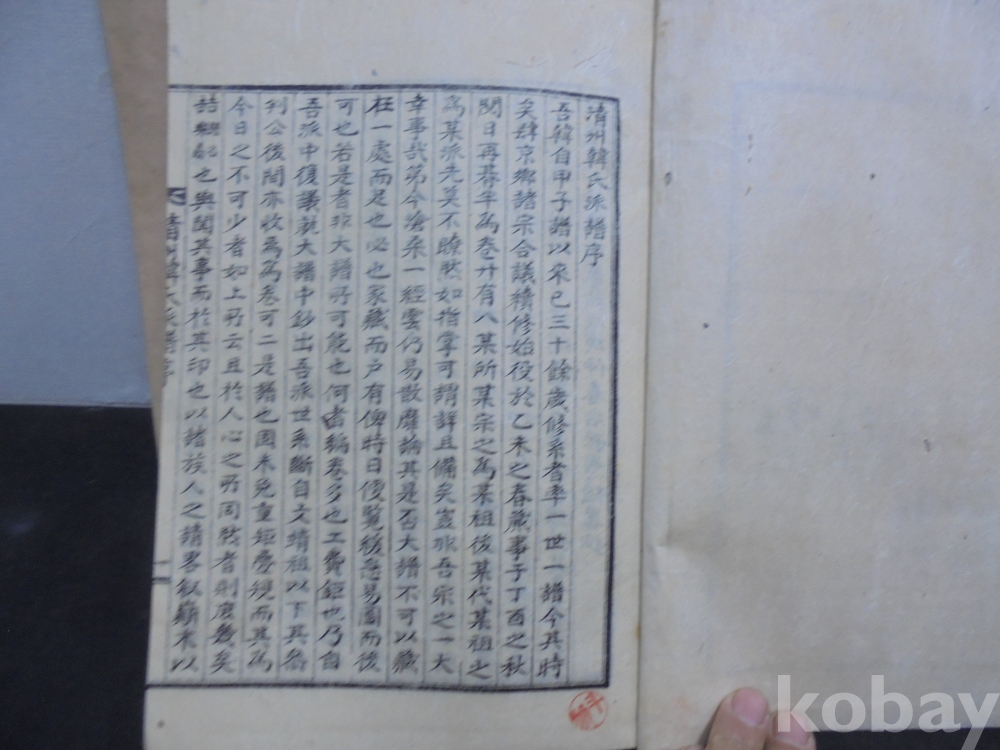 清州韓氏派譜序
吾韓自甲子譜以來已三十餘歲修系者率一世一譜今其時
矣肆京鄉諸宗合議續修始役於乙未之春蕆事于丁酉之秋
閱日再朞年爲卷廿有八某所某宗之爲某祖後某代某祖之
爲某派先莫不瞭然如指掌可謂詳且備矣豈非吾宗之一大
幸事哉第今滄桑一經雲仍易散靡論其是否大譜不可以藏
在一處而足也必也家藏而戶有俾時日便覽緩急易圖而後
可也若是者非大譜所可能也何者編卷多也工費鉅也乃自
吾派中復議就大譜中鈔出吾派世系斷自文靖祖以下其
列公後間亦收焉爲卷可二是譜也固未免重矩疊規而其爲
今日之不可少者如上所云且於人心之所同然者則庶幾矣
喆 也與聞其事而於其印也以諸族人之請畧叙顚末以
清州韓氏派譜序
一
kobay